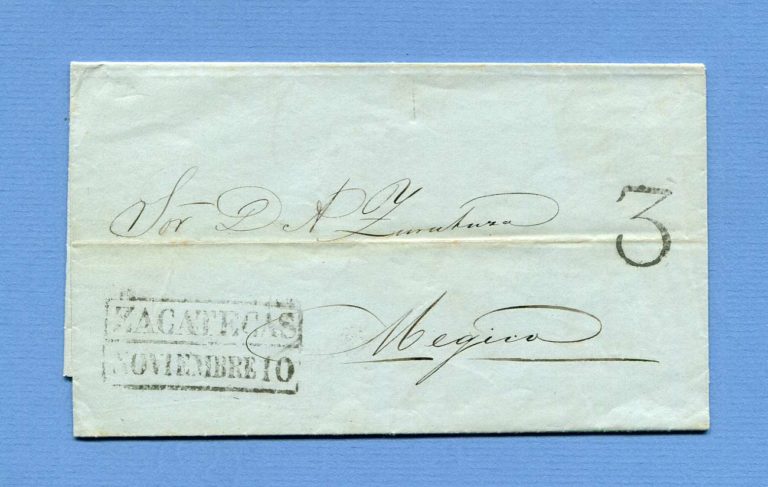 Sor D A Y Zurutuza
3
Megico
ZACATECAS
NOVIEMBRE 10